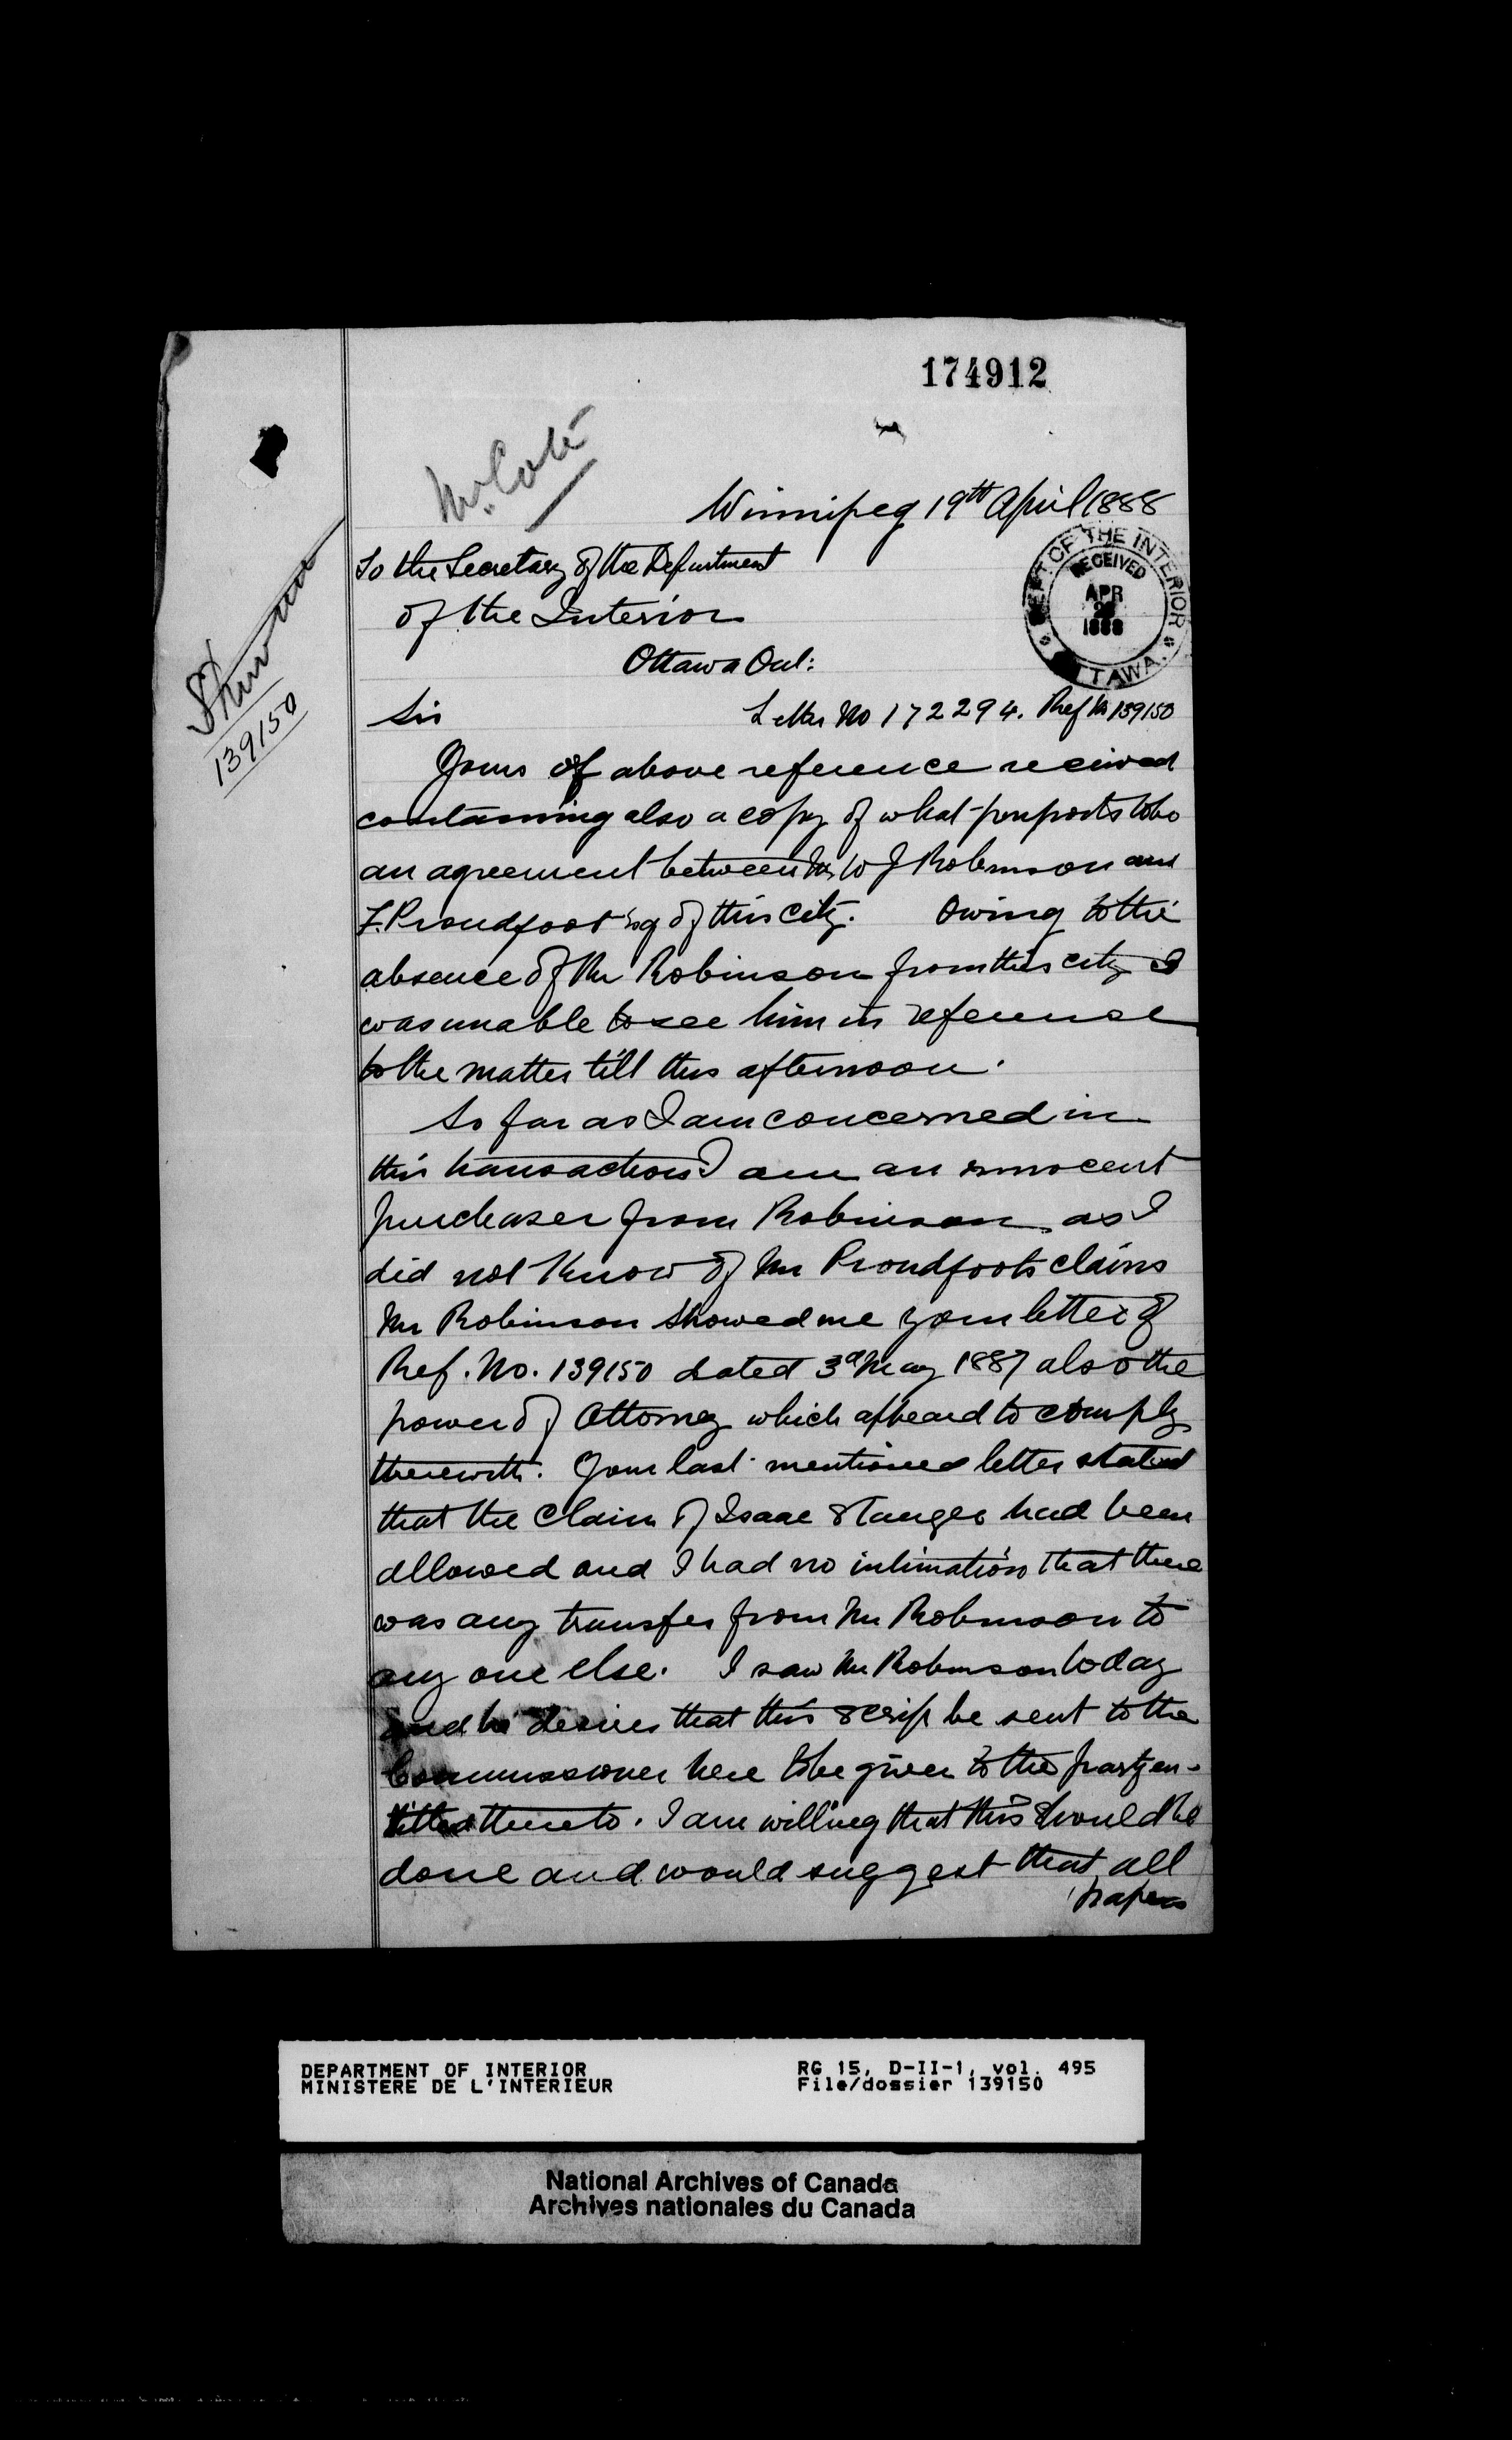 174912
Mr. Coté
Winnipeg 19th April 1888
To the Secretary of the Department
of the Interior
Ottawa Ont:
DEPT OF THE INTERIOR
RECEIVED
APR
1888
OTTAWA.
139150
Sir Letter No 172294. Ref No 139150
Yours of above reference received
containing also a copy of what purports to be
an agreement between Mr W J Robinson and
F. Proudfoot Esq of this city. Owing to the
absence of Mr Robinson from this city I
was unable to see him in reference
to the matter till this afternoon.
So far as I am concerned in
this transaction I am an innocent
purchaser from Robinson as I
did not know of Mr Proudfoots claims
Mr Robinson showed me your letter of
Ref. No. 139150 dated 3d May 1887 also the
power of Attorney which appeard to comply
therewith. Your last mentioned letter stated
that the claim of Isaac Stanger had been
allowed and I had no intimation that there
was any transfer from Mr Robinson to
any one else. I saw Mr Robinson today
and he desires that this scrip be sent to the
Commissioner here to be given to the party en-
titled thereto. I am willing that this should be
done and would suggest that all
papers
DEPARTMENT OF INTERIOR RG 15, D-II-1, vol. 495
MINISTERE DE L'INTERIEUR File/dossier 139150
National Archives of Canada
Archives nationales du Canada